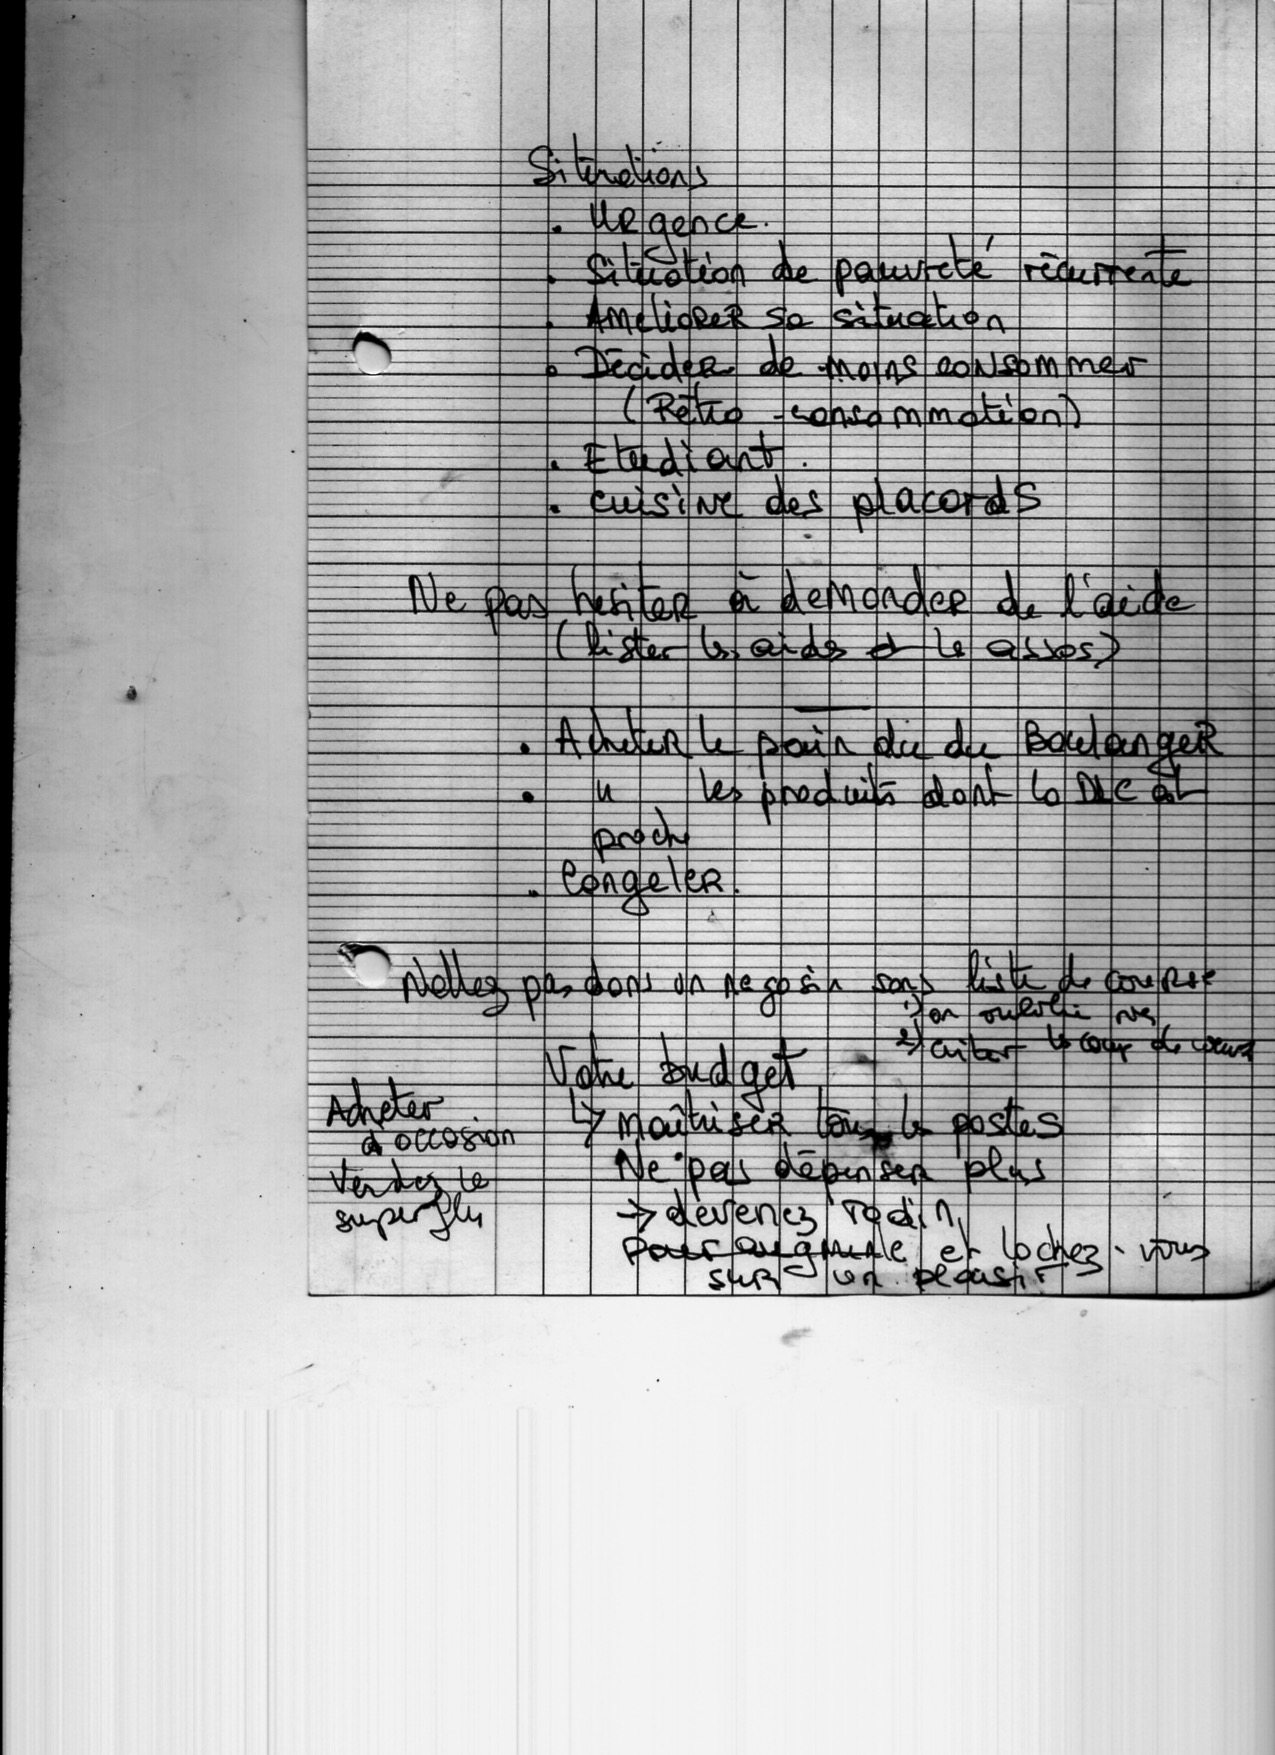 Situations
. Urgence.
. Situation de pauvreté récurrente
. Améliorer sa situation
. Décider de moins consommer
(Rétro-consommation)
. Etudiant.
. cuisine des placards
Ne pas hesiter à demander de l'aide
(lister les aides et le assos)
. Acheter le pain du du Boulanger
. " les produits dont la DLC est
proche
. Congeler.
N'allez pas dans un magasin sans liste de course
1) on oublie
2) eviter le coup de coeur
Votre budget
↳ maîtriser tous le postes
Ne pas dépenser plus
→ devenez radin
et lachez-vous
sur un plaisir
Acheter
d'occasion
Vendez le
superflu